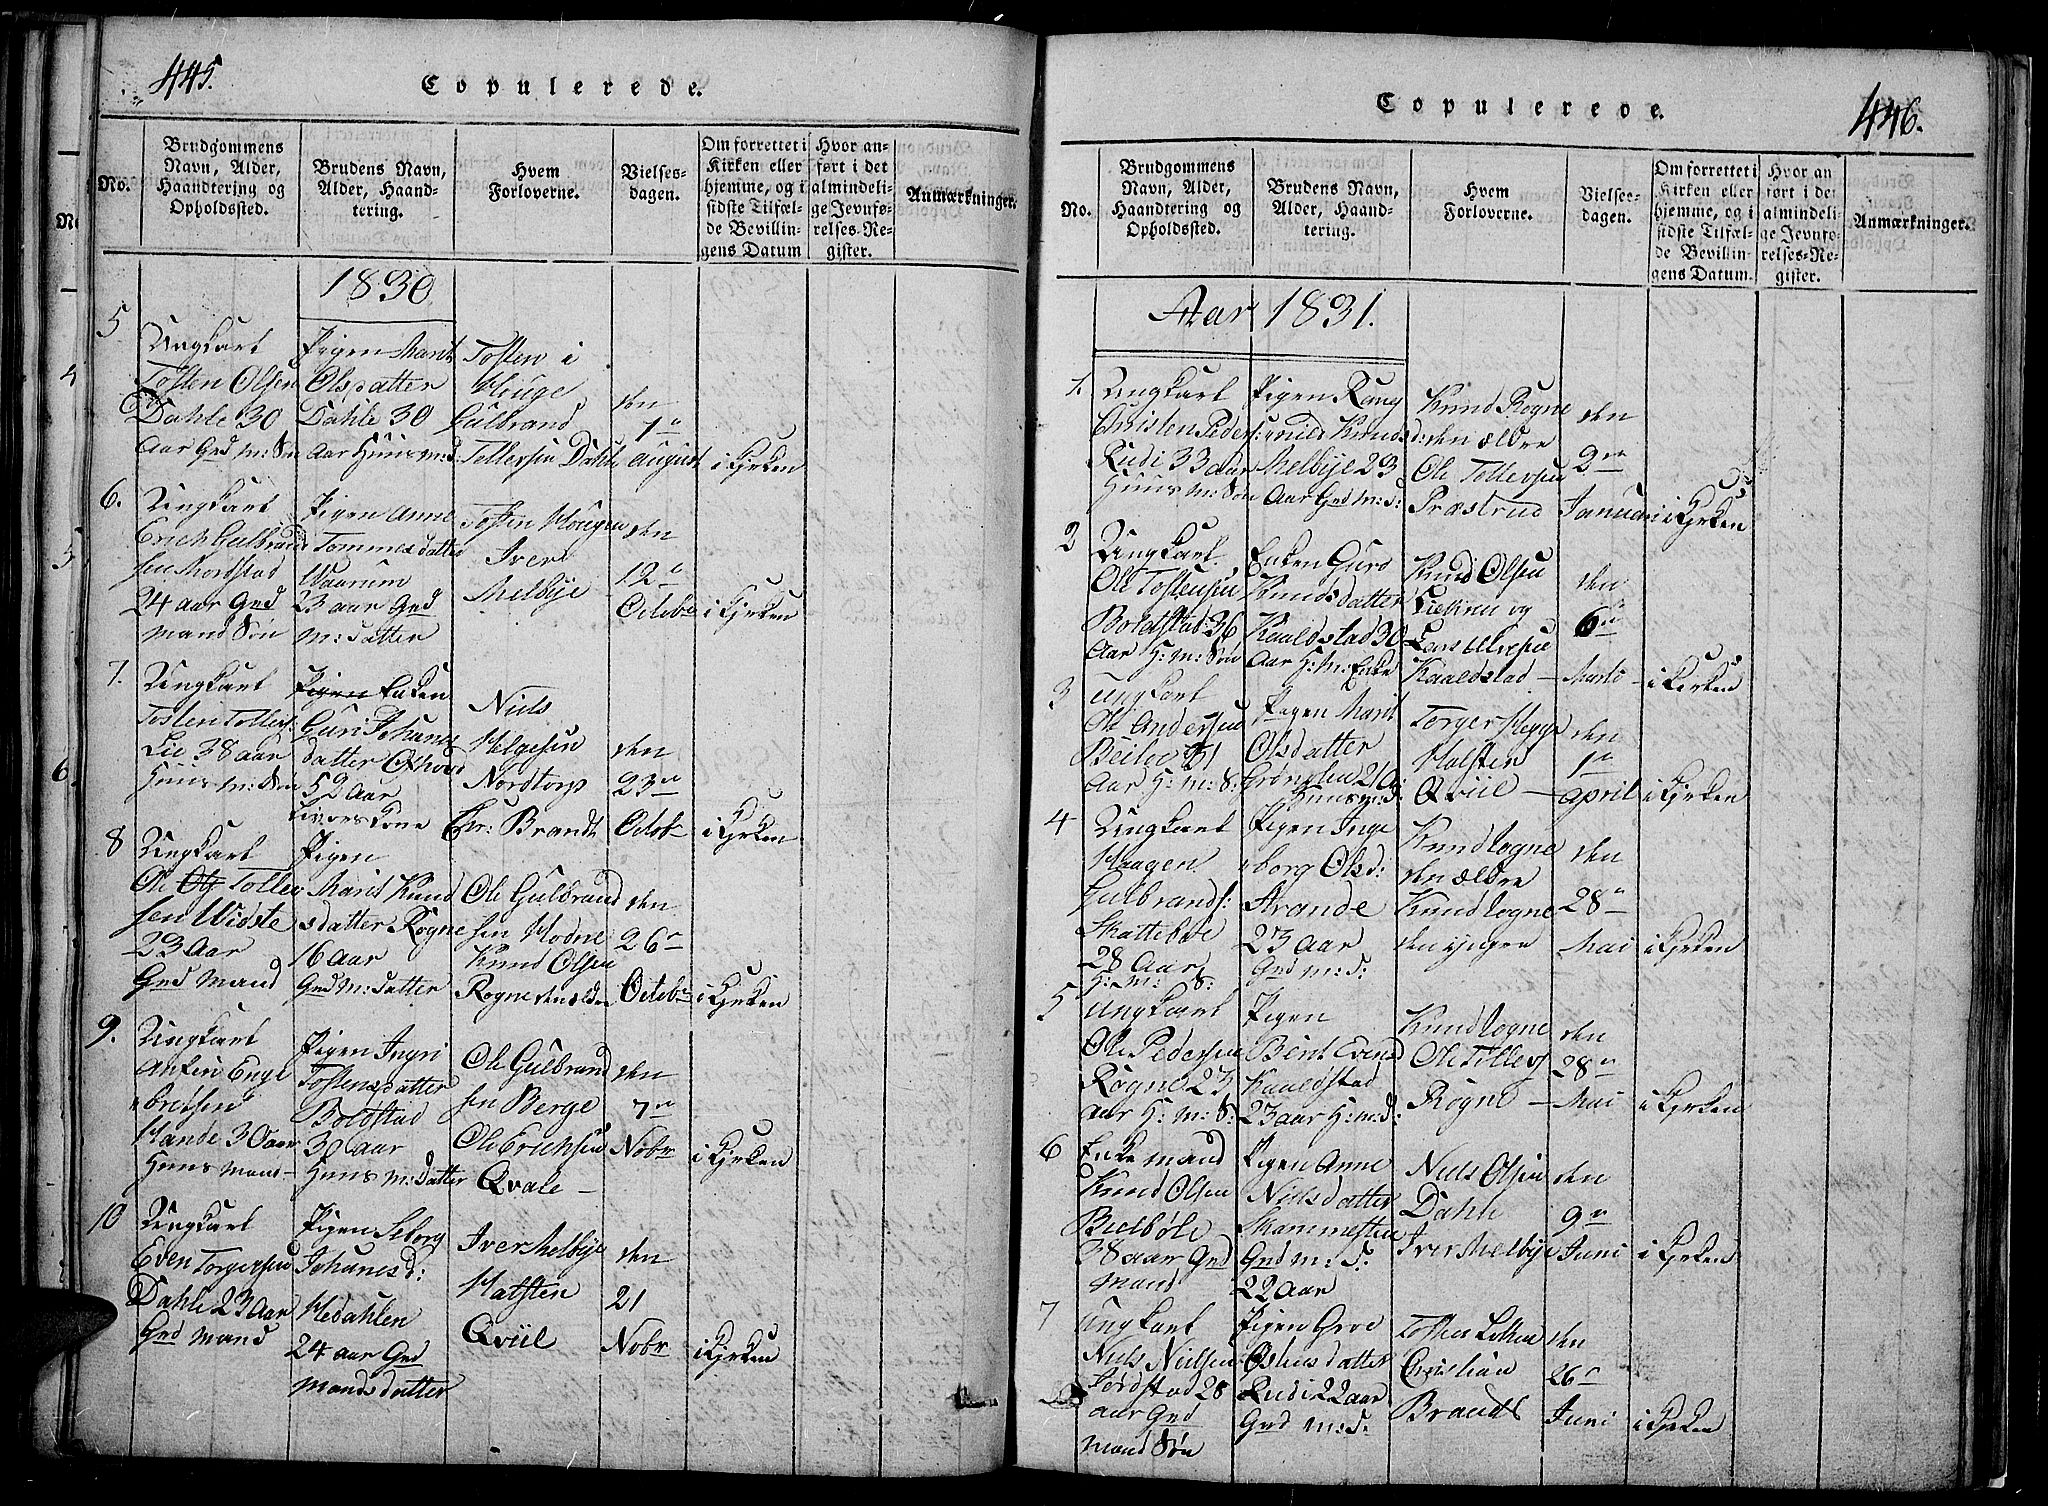 445.
Copulerede.
No.
Brudgommens Navn, Alder, Haandtering og Opholdssted.
Brudens Navn, Alder, Haandtering.
Hvem Forloverne.
Vielsesdagen.
Om forrettet i Kirken eller hjemme, og i sidste Tilfælde Bevillingens Datum
Hvor anført i det almindelige Jevnførelses-Register.
Anmærkninger.
1830
5
Ungkarl
Tosten Olsen
Dahle 30
Aar Grd m: Søn
Pigen Marit
Olsdatter
Dahle 30
Aar Huusm:d:
Tosten i
Houge
Gulbrand
Tollefsen Dahle
den
1te
August
i Kirken
6.
Ungkarl
Erich Gulbrand
sen Mordstad
24 aar Grd
mand Søn
Pigen Anne
Tommesdatter
Waarum
23 aar Grd
m:datter
Tosten Hougen
Iver
Melbye
den
12te
Octobr
i Kirken
7.
Ungkarl
Tosten Tollefs:
Lie 38 aar
Huus m: Søn
Pigen Enken
Guri Johans
datter
52 Aar
Niels
Helgesen
Nordtorp
Chr: Brandt
den
23de
Octobr
i Kirken
8
Ungkarl
Ole Tollef
sen Widste
23 Aar
Grd mand
Pigen
Marit Knud
sdatter Rogne
16 aar
Grd m:datter
Ole Gulbrand
sen Hodne
Knud Olsen
Rogne den ældre
den
26de
Octobr
i Kirken
9.
Ungkarl
Anfin Enge
bretsen
Hande 30 aar
Huusmand
Pigen Ingri
Tostensdatter
Boldstad
30 aar
Huus m:datter
Ole Gulbrand
sen Berge
Ole Erichsen
Qvale
den
7de
Nobr
i Kirken
10
Ungkarl
Even Torgersen
Dahle 23 Aar
Grd mand
Pigen Seborg
Johanesd:
Hedahlen
24 aar Grd
mandsdatter
Iver Melbye
Halsten
Qviil
den
21
Nobr
i Kirken
446.
Copulerede.
No.
Brudgommens Navn, Alder, Haandtering og Opholdssted.
Brudens Navn, Alder, Haandtering.
Hvem Forloverne.
Vielsesdagen.
Om forrettet i Kirken eller hjemme, og i sidste Tilfælde Bevillingens Datum.
Hvor anført i det almindelige Jevnførelses-Register.
Anmærkninger.
Aar 1831.
1.
Ungkarl
Cristen Peders:
Rudi 33 aar
Huus m: Søn
Pigen Rang
nild Knudsd:
Melbye 23
Aar Grd m:d:
Knud Rogne
den ældre
Ole Tollefsen
Præstrud
den
2de
Januar
i Kirken
2
Ungkarl
Ole Tostensen
Boldstad 36
Aar H: m: Søn
Enken Guro
Knudsdatter
Kaaldstad 30
Aar H: m: Enke
Knud Olsen
og
Kaaldstad
den
6te
Marts
i Kirken
3
Ungkarl
Ole Andersen
Beiloe 31
Aar H: m: S:
Pigen Marit
Olsdatter
Grønolen
Huusm:d:
Torger Hegge
Halsten
Qviil
den
1te
April
i Kirken
4
Ungkarl
Haagen
Gulbrands:
Skattebøe
28 Aar
H: m: S:
Pigen Inge
borg Olsd:
Strande
23 Aar
Grd m:d:
Knud Rogne
den ældre
Knud Rogne
den yngere
den
28de
Mai
i Kirken
5
Ungkarl
Ole Pedersen
Rogne 23
aar H: m: S:
Pigen
Berit Evensd
Kaaldstad
23 aar H:m:d:
Knud Rogne
Ole Tollefs
Rogne
den
28de
Mai
i Kirken
6
Enkemand
Knud Olsen
Bielbøle
38 aar Grd
mand
Pigen Anne
Nielsdatter
Skammesten
Grd m:d:
22 Aar
Niels Olsen
Dahle
Iver Melbye
den
9de
Juni
i Kirken
7
Ungkarl
Niels Nielsen
28
aar Grd
mand Søn
Pigen Groe
Østensdatter
Rudi 22 aar
Grd m:d:
Tosten
Christian
Brandt
den
26de
Juni
i Kirken